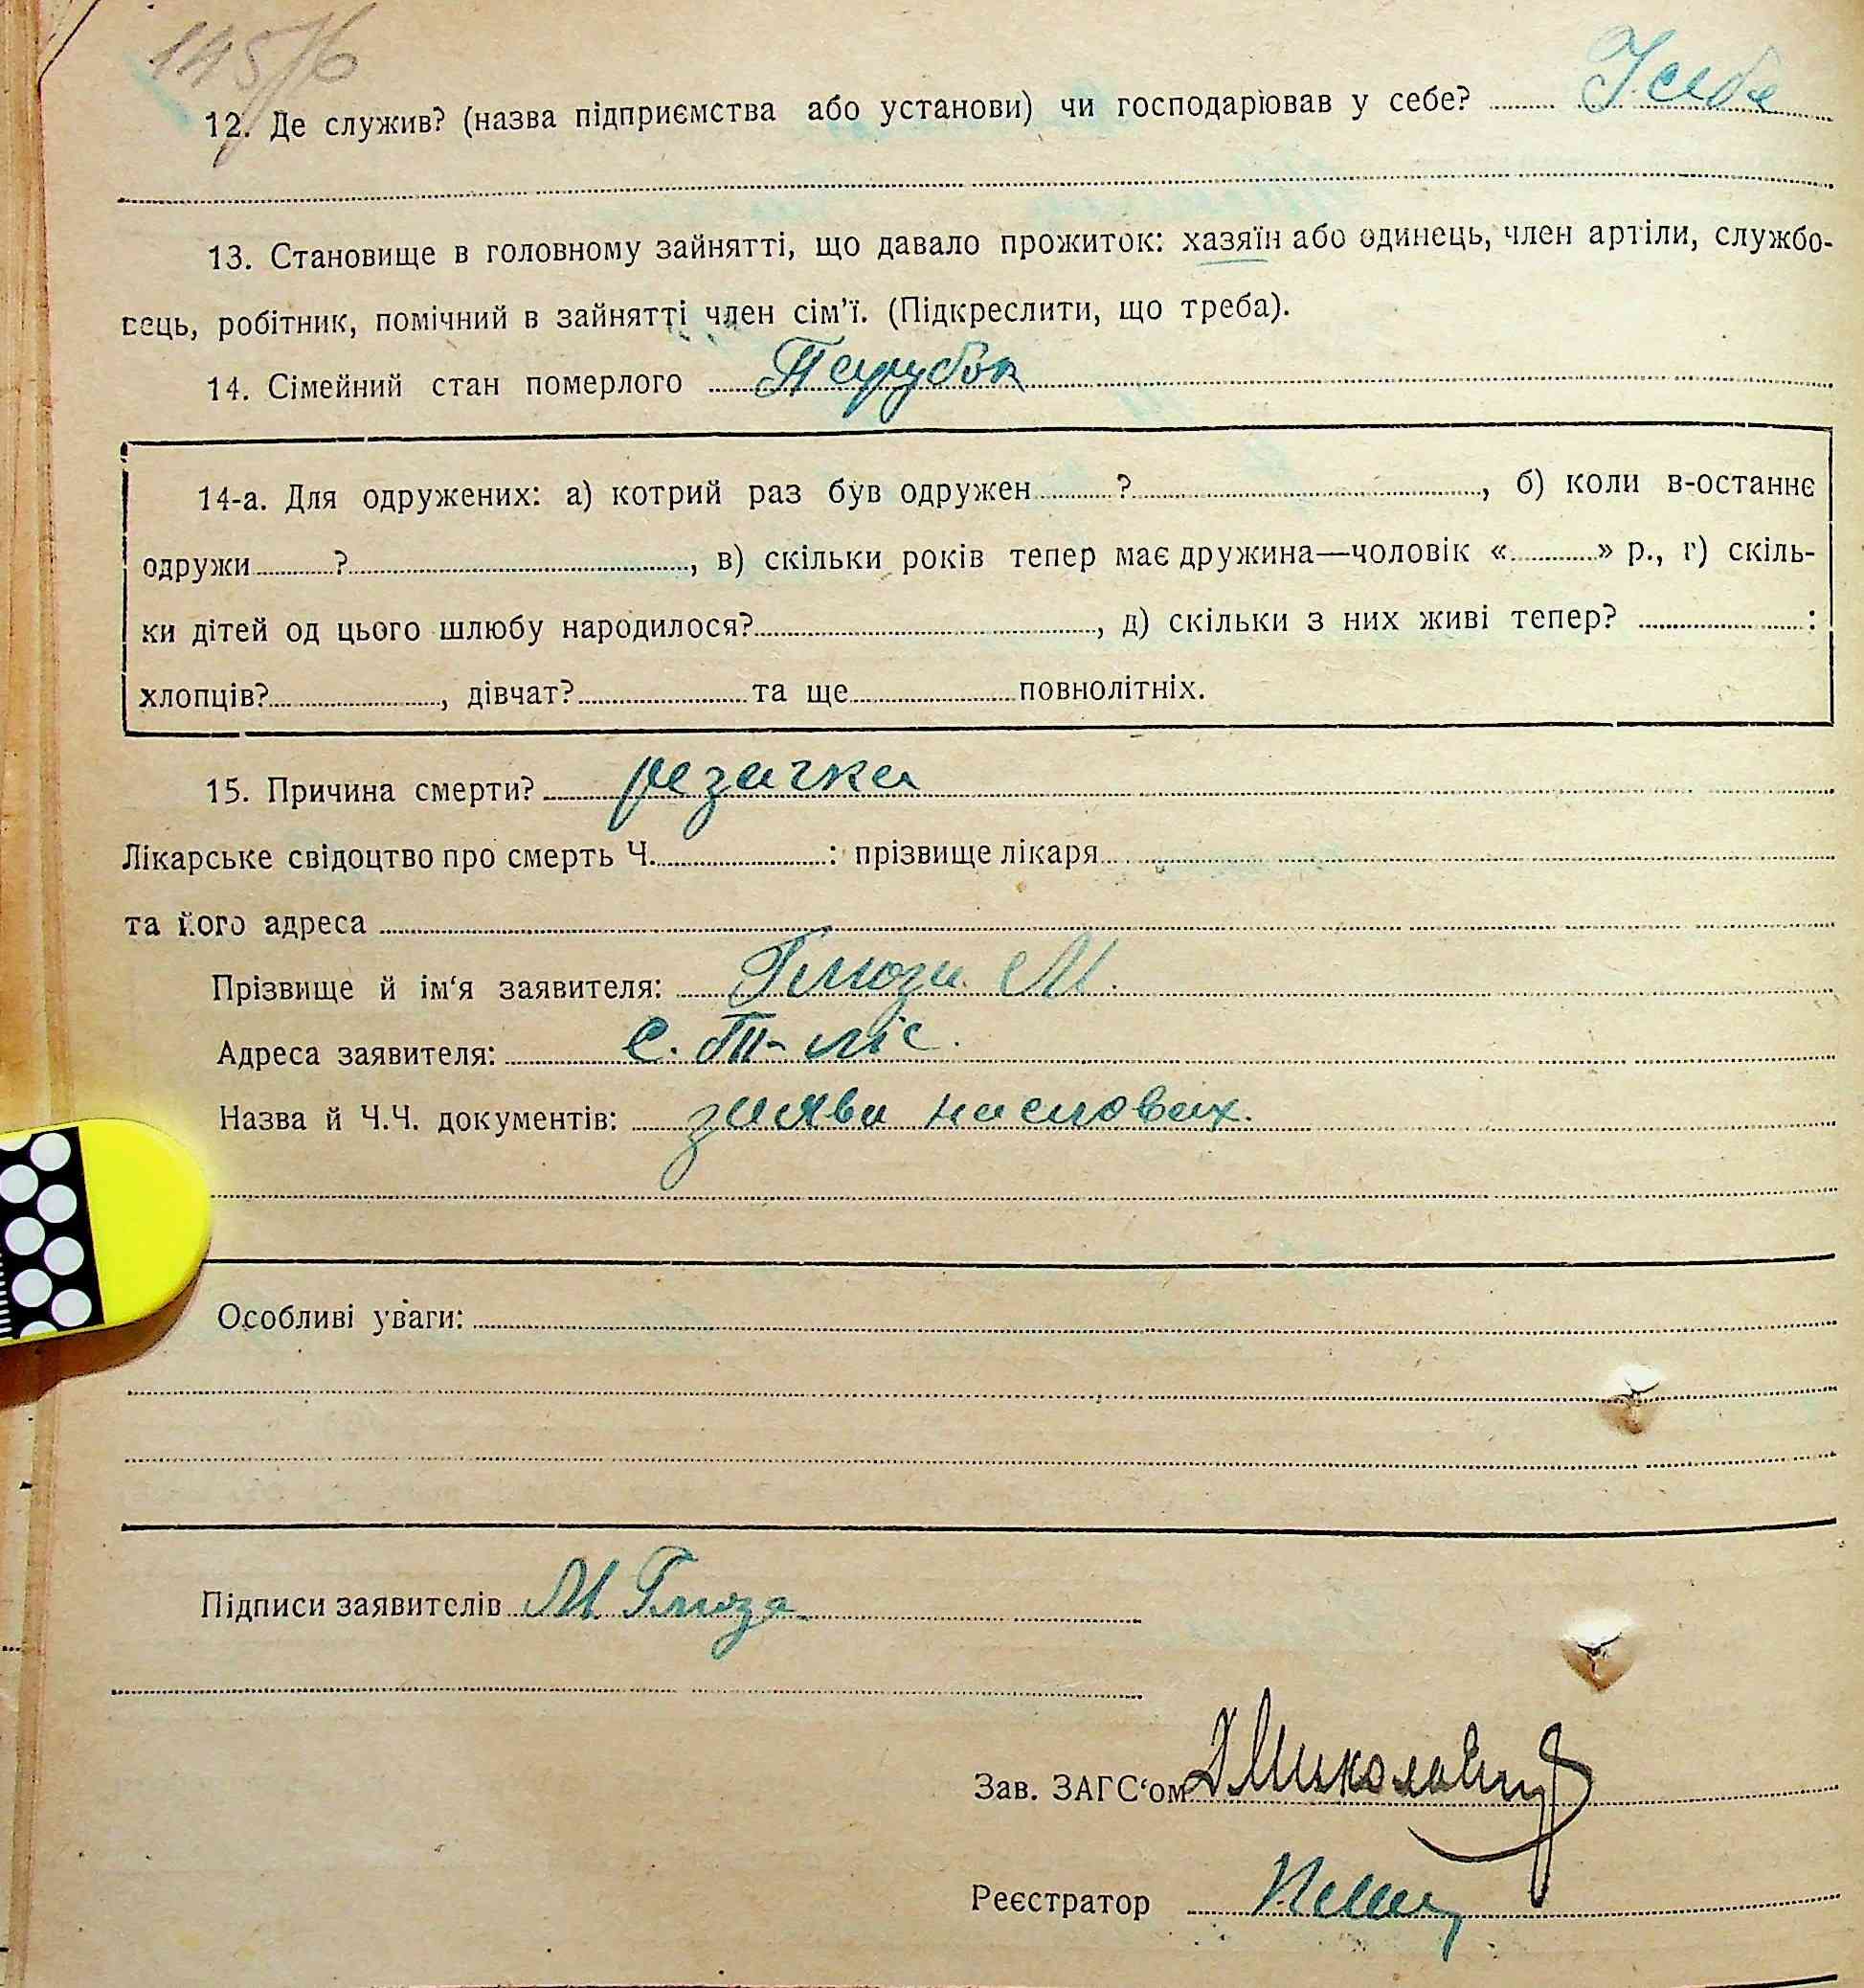 145/6
12. Де служив? (назва підприємства або установи) чи господарював у себе? У себе
13. Становище в головному зайнятті, що давало прожиток: хазяїн або одинець, член артіли, службо-
вець, робітник, помічний в зайнятті член сім'ї. (Підкреслити, що треба).
14. Сімейний стан померлого Парубок
14-а. Для одружених: а) котрий раз був одружен ? , б) коли в-останнє
одружи ? , в) скільки років тепер має дружина—чоловік « » р., г) скіль-
ки дітей од цього шлюбу народилося? , д) скільки з них живі тепер? :
хлопців? , дівчат? та ще повнолітніх.
15. Причина смерти? резачка
Лікарське свідоцтво про смерть Ч. : прізвище лікаря
та його адреса
Прізвище й ім'я заявителя: М.
Адреса заявителя: С.
Назва й Ч.Ч. документів: заява на словах.
Особливі уваги:
Підписи заявителів М
Зав. ЗАГС'ом
Реєстратор